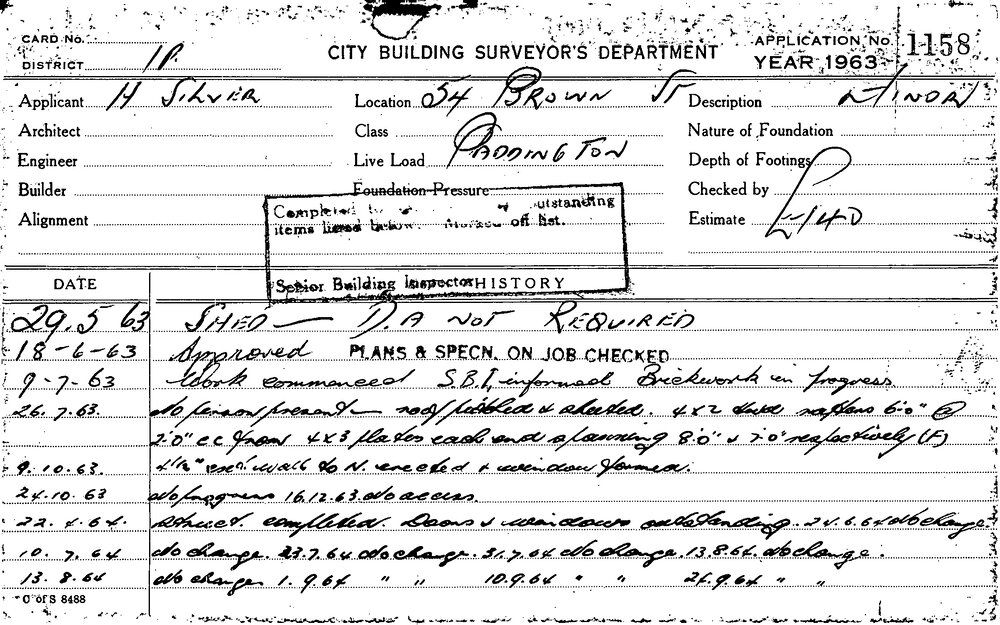 CARD No. CITY BUILDING SURVEYOR'S DEPARTMENT APPLICATION No. 1158
DISTRICT 1P. YEAR 1963
Applicant H SILVER Location 54 BROWN ST Description MINOR
Architect Class Nature of Foundation
Engineer Live Load PADDINGTON Depth of Footings
Builder Foundation Pressure Checked by
Alignment Estimate £140
Completed outstanding
items listed below. Marked off list.
Senior Building Inspector
DATE HISTORY
29.5 63 SHED — D.A NOT REQUIRED
18-6-63 Approved PLANS & SPECN. ON JOB CHECKED
9-7-63 Work commenced S.B.I. informed Brickwork in progress
26.7.63. No person present — roof pitched & sheeted. 4x2 rafters 6'0" @
2'0" c.c from 4x3 plates each end spanning 8'0" & 7'0" respectively (F)
9.10.63. 4½" wall to N. erected & window formed.
24.10.63 No progress 16.12.63. No access.
22.4.64. Struct. completed. Doors & windows outstanding. 24.6.64 No change
10.7.64 No change. 23.7.64 No change. 31.7.64 No change. 13.8.64 No change.
13.8.64 No change 1.9.64 " " 10.9.64 " " 26.9.64 " "
C of S 8488